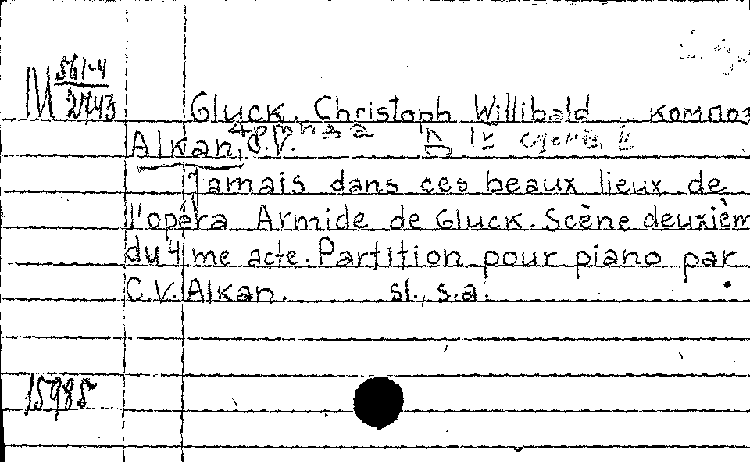 M 561-4
2743
Gluck. Christoph Willibald композ
Армида
Alkan, C.V.
Jamais dans ces beaux lieux de
l'opéra Armide de Gluck. Scène deuxièm
du 4 me acte. Partition pour piano par
C.V. Alkan. sl., s.a.
15985